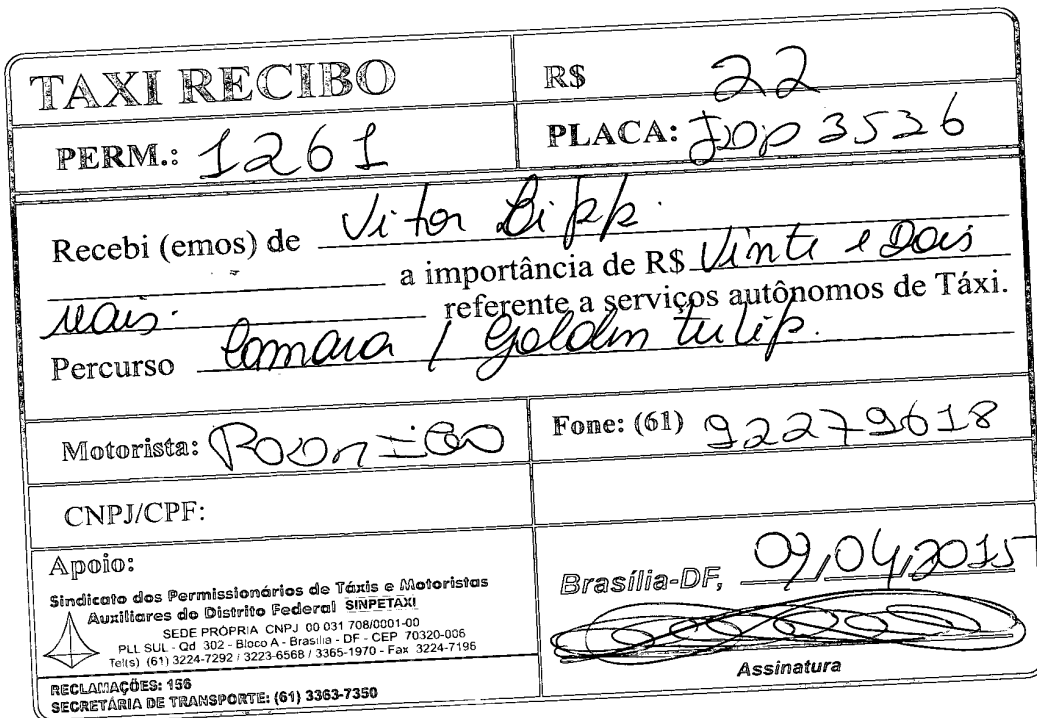 TAXI RECIBO
R$ 22
PERM.: 1261
PLACA: JDP 3526
Recebi (emos) de Vitor Bipp.
a importância de R$ Vinte e Dois
reais. referente a serviços autônomos de Táxi.
Percurso Camara / Golden tulip.
Motorista:
Fone: (61) 92279618
CNPJ/CPF:
Apoio:
Sindicato dos Permissionários de Táxis e Motoristas
Auxiliares do Distrito Federal SINPETAXI
SEDE PRÓPRIA CNPJ 00 031 708/0001-00
PLL SUL - Qd 302 - Bloco A - Brasília - DF - CEP 70320-006
Tel(s) (61) 3224-7292 / 3223-6568 / 3365-1970 - Fax 3224-7196
RECLAMAÇÕES: 156
SECRETÁRIA DE TRANSPORTE: (61) 3363-7350
Brasília-DF, 09/04/2015
Assinatura